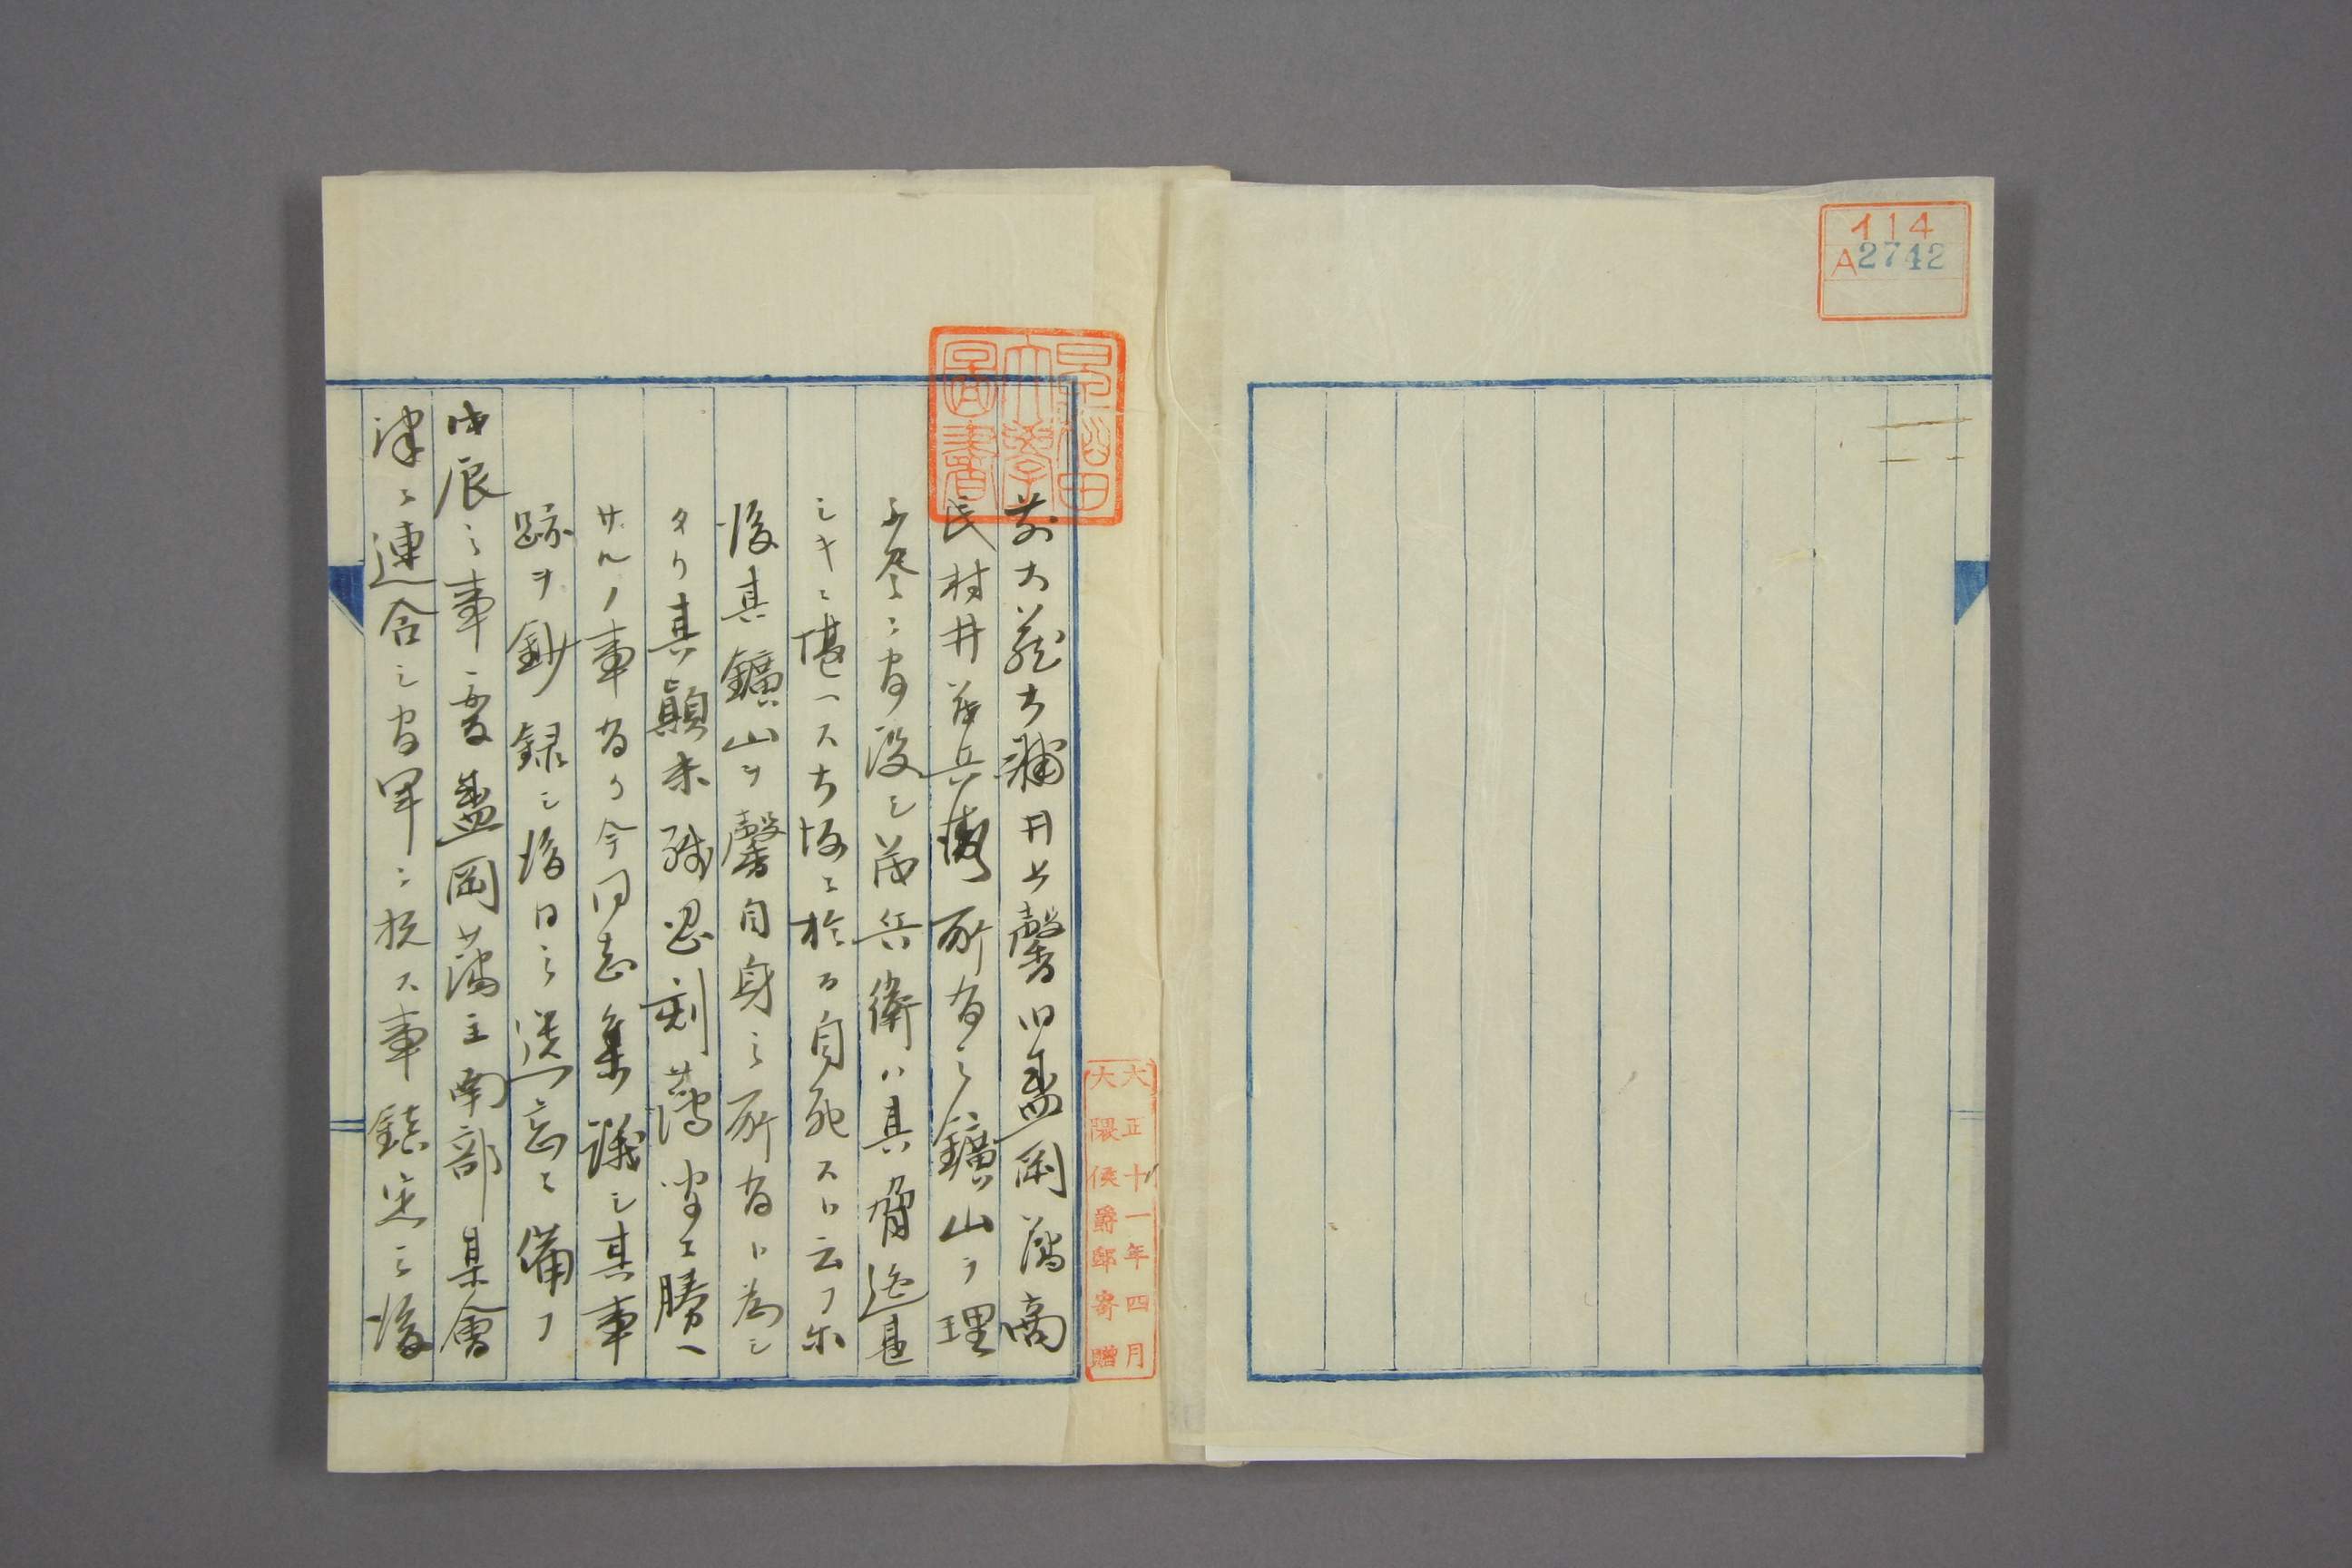 114
A2742
早稲田大學圖書
大正十一年四月
大隈侯爵邸寄贈
前大蔵大輔井上馨旧盛岡藩商
民村井茂兵衛所有之鑛山ヲ理
不尽ニ官没シ茂兵衛ハ其脅迫甚
シキニ堪ヘス大坂ニ於テ自死スト云フ尓
後其鑛山ヲ馨自身之所有ト為シ
タリ其顛末残忍刻薄聞クニ勝ヘ
サルノ事有リ今同志集議シ其事
跡ヲ鈔録シ後日之遺忘ニ備フ
戊辰之事変盛岡藩主南部某會
津ニ連合シ官軍ニ抗ス事鎮定之後